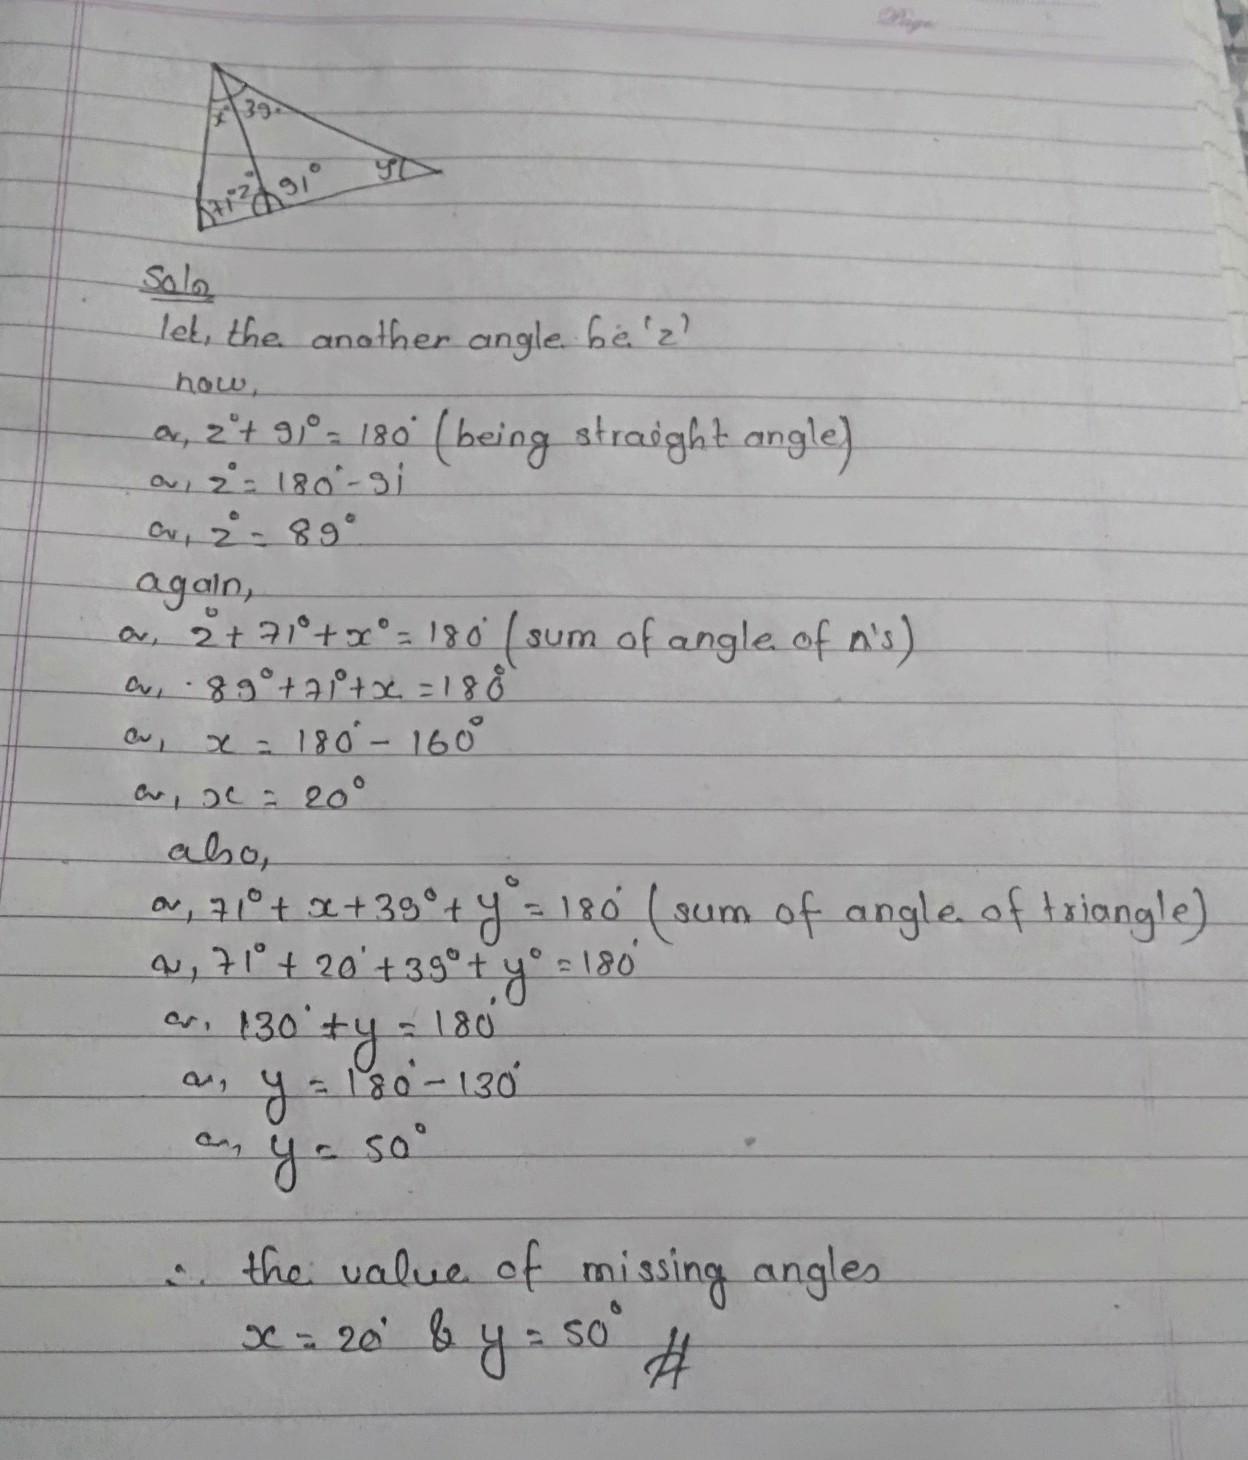 Page
x° 39°
71° z° 91° y
Soln
let, the another angle be 'z'
now,
or, z° + 91° = 180° (being straight angle)
or, z° = 180° - 91°
or, z° = 89°
again,
or, z° + 71° + x° = 180° (sum of angle of n's)
or, 89° + 71° + x = 180°
or, x = 180° - 160°
or, x = 20°
also,
or, 71° + x + 39° + y° = 180° (sum of angle of triangle)
or, 71° + 20° + 39° + y° = 180°
or, 130° + y = 180°
or, y = 180° - 130°
or, y = 50°
∴ the value of missing angles
x = 20° & y = 50° #